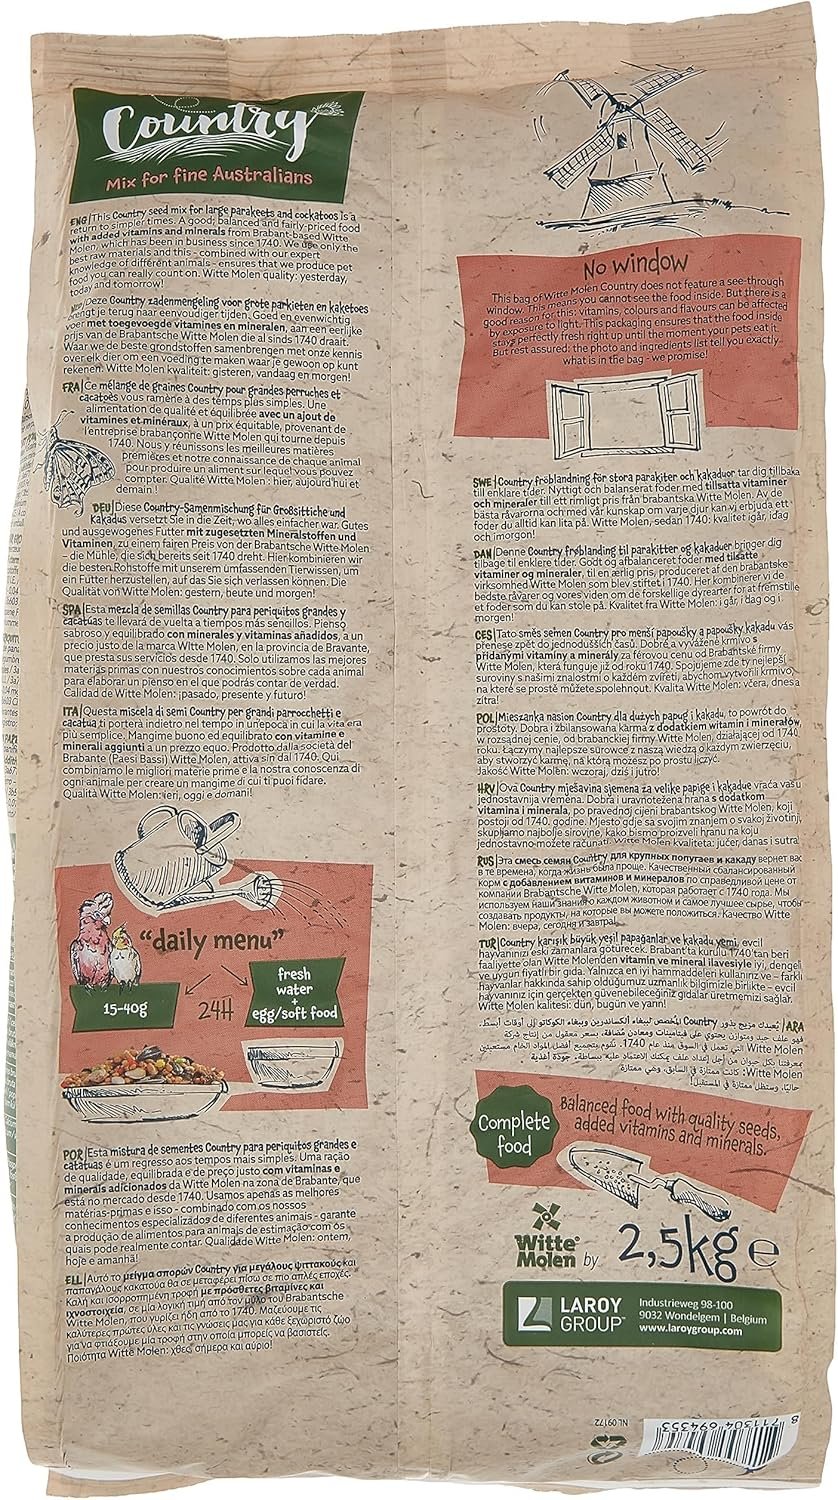 Country
Mix for fine Australians
ENG|This Country seed mix for large parakeets and cockatoos is a
return to simpler times. A good, balanced and fairly-priced food
with added vitamins and minerals from Brabant-based Witte
Molen, which has been in business since 1740. We use only the
best raw materials and this - combined with our expert
knowledge of different animals - ensures that we produce pet
food you can really count on. Witte Molen quality: yesterday,
today and tomorrow!
Deze Country zadenmengeling voor grote parkieten en kaketoes
brengt je terug naar eenvoudiger tijden. Goed en evenwichtig
voer met toegevoegde vitamines en mineralen, aan een eerlijke
prijs van de Brabantse Witte Molen die al sinds 1740 draait.
Waar we de beste grondstoffen samenbrengen met onze kennis
over elk dier om een voeding te maken waar je gewoon op kunt
rekenen. Witte Molen kwaliteit: gisteren, vandaag en morgen!
FRA|Ce mélange de graines Country pour grandes perruches et
cacatoès vous ramène à des temps plus simples. Une
alimentation de qualité et équilibrée avec un ajout de
vitamines et minéraux, à un prix équitable, provenant de
l'entreprise brabançonne Witte Molen qui tourne depuis
1740. Nous y réunissons les meilleures matières
premières et notre connaissance de chaque animal
pour produire un aliment sur lequel vous pouvez
compter. Qualité Witte Molen : hier, aujourd'hui et
demain !
DEU|Diese Country-Samenmischung für Großsittiche und
Kakadus versetzt Sie in die Zeit, wo alles einfacher war. Gutes
und ausgewogenes Futter mit zugesetzten Mineralstoffen und
Vitaminen, zu einem fairen Preis von der Brabantse Witte Molen
- die Mühle, die sich bereits seit 1740 dreht. Hier kombinieren wir
die besten Rohstoffe mit unserem umfassenden Tierwissen, um
ein Futter herzustellen, auf das Sie sich verlassen können. Die
Qualität von Witte Molen: gestern, heute und morgen!
SPA|Esta mezcla de semillas Country para periquitos grandes y
cacatúas te llevará de vuelta a tiempos más sencillos. Pienso
sabroso y equilibrado con minerales y vitaminas añadidos, a un
precio justo de la marca Witte Molen, en la provincia de Bravante,
que presta sus servicios desde 1740. Solo utilizamos las mejores
materias primas con nuestros conocimientos sobre cada animal
para elaborar un pienso en el que podrás contar de verdad.
Calidad de Witte Molen: ¡pasado, presente y futuro!
ITA|Questa miscela di semi Country per grandi parrocchetti e
cacatua ti porterà indietro nel tempo in un'epoca in cui la vita era
più semplice. Mangime buono ed equilibrato con vitamine e
minerali aggiunti a un prezzo equo. Prodotto dalla società del
Brabante (Paesi Bassi) Witte Molen, attiva sin dal 1740. Qui
combiniamo le migliori materie prime e la nostra conoscenza di
ogni animale per creare un mangime di cui ti puoi fidare.
Qualità Witte Molen: ieri, oggi e domani!
"daily menu"
15-40g
24H
fresh
water
+
egg/soft food
POR|Esta mistura de sementes Country para periquitos grandes e
catatuas é um regresso aos tempos mais simples. Uma ração
de qualidade, equilibrada e de preço justo com vitaminas e
minerais adicionados da Witte Molen na zona de Brabante, que
está no mercado desde 1740. Usamos apenas as melhores
matérias-primas e isso - combinado com os nossos
conhecimentos especializados de diferentes animais - garante
a produção de alimentos para animais de estimação com os
quais pode realmente contar. Qualidade Witte Molen: ontem,
hoje e amanhã!
ELL|Αυτό το μείγμα σπορών Country για μεγάλους ψιττακούς και
παπαγάλους κακατούα θα σε μεταφέρει πίσω σε πιο απλές εποχές.
Καλή και ισορροπημένη τροφή με πρόσθετες βιταμίνες και
ιχνοστοιχεία, σε μία λογική τιμή από τον μύλο του Brabantsche
Witte Molen, που γυρίζει ήδη από το 1740. Μαζεύουμε τις
καλύτερες πρώτες ύλες και τις γνώσεις μας για κάθε ξεχωριστό ζώο
για να φτιάξουμε μία τροφή στην οποία μπορείς να βασιστείς.
Ποιότητα Witte Molen: χθες, σήμερα και αύριο!
No window
This bag of Witte Molen Country does not feature a see-through
window. This means you cannot see the food inside. But there is a
good reason for this: vitamins, colours and flavours can be affected
by exposure to light. This packaging ensures that the food inside
stays perfectly fresh right up until the moment your pets eat it.
But rest assured: the photo and ingredients list tell you exactly
what is in the bag - we promise!
SWE|Country fröblandning för stora parakiter och kakaduor tar dig tillbaka
till enklare tider. Nyttigt och balanserat foder med tillsatta vitaminer
och mineraler till ett rimligt pris från brabantska Witte Molen. Av de
bästa råvarorna och med vår kunskap om varje djur kan vi erbjuda ett
foder du alltid kan lita på. Witte Molen, sedan 1740: kvalitet igår, idag
och imorgon!
DAN|Denne Country frøblanding til parakitter og kakaduer bringer dig
tilbage til enklere tider. Godt og afbalanceret foder med tilsatte
vitaminer og mineraler, til en ærlig pris, produceret af den brabantske
virksomhed Witte Molen som blev stiftet i 1740. Her kombinerer vi de
bedste råvarer og vores viden om de forskellige dyrearter for at fremstille
et foder som du kan stole på. Kvalitet fra Witte Molen: i går, i dag og i
morgen!
CES|Tato směs semen Country pro menší papoušky a papoušky kakadu vás
přenese zpět do jednodušších časů. Dobré a vyvážené krmivo s
přidanými vitamíny a minerály za férovou cenu od Brabantské firmy
Witte Molen, která funguje již od roku 1740. Spojujeme zde ty nejlepší
suroviny s našimi znalostmi o každém zvířeti, abychom vytvořili krmivo,
na které se prostě můžete spolehnout. Kvalita Witte Molen: včera, dnes a
zítra!
POL|Mieszanka nasion Country dla dużych papug i kakadu, to powrót do
prostoty. Dobra i zbilansowana karma z dodatkiem witamin i minerałów,
w rozsądnej cenie, od brabanckiej firmy Witte Molen, działającej od 1740
roku. Łączymy najlepsze surowce z naszą wiedzą o każdym zwierzęciu,
aby stworzyć karmę, na którą możesz po prostu liczyć.
Jakość Witte Molen: wczoraj, dziś i jutro!
HRV|Ova Country mješavina sjemena za velike papige i kakadue vraća vas u
jednostavnija vremena. Dobra i uravnotežena hrana s dodatkom
vitamina i minerala, po pravednoj cijeni brabantskog Witte Molen, koji
postoji od 1740. godine. Mjesto gdje sa svojim znanjem o svakoj životinji,
skupljamo najbolje sirovine, kako bismo proizveli hranu na koju
jednostavno možete računati. Witte Molen kvaliteta: jučer, danas i sutra!
RUS|Эта смесь семян Country для крупных попугаев и какаду вернет вас
в те времена, когда жизнь была проще. Качественный сбалансированный
корм с добавлением витаминов и минералов по справедливой цене от
компании Brabantsche Witte Molen, которая работает с 1740 года. Мы
используем наши знания о каждом животном и самое лучшее сырье, чтобы
создавать продукты, на которые вы можете положиться. Качество Witte
Molen: вчера, сегодня и завтра!
TUR|Country karışık büyük yeşil papağanlar ve kakadu yemi, evcil
hayvanınızı eski zamanlara götürecek. Brabant'ta kurulu 1740'tan beri
faaliyette olan Witte Molenden vitamin ve mineral ilavesiyle iyi, dengeli
ve uygun fiyatlı bir gıda. Yalnızca en iyi hammaddeleri kullanırız ve - farklı
hayvanlar hakkında sahip olduğumuz uzmanlık bilgimizle birlikte - evcil
hayvanınız için gerçekten güvenebileceğiniz gıdalar üretmemizi sağlar.
Witte Molen kalitesi: dün, bugün ve yarın!
ARA| يُعيدك مزيج بذور Country المُخصص لببغاء ألكساندرين وببغاء الكوكاتو إلى أوقات أبسط.
فهو علف جيد ومتوازن يحتوي على فيتامينات ومعادن مُضافة، بسعر معقول من إنتاج شركة
Witte Molen التي تعمل في السوق منذ عام 1740. نقوم بتجميع أفضل المواد الخام مستعينين
بمعرفتنا بكل حيوان من أجل إعداد علف يمكنك الاعتماد عليه ببساطة. جودة أغذية
Witte Molen: كانت ممتازة في السابق، وهي ممتازة
حاليًا، وستظل ممتازة في المستقبل!
Complete
food
Balanced food with quality seeds,
added vitamins and minerals.
Witte
Molen by
2,5kg e
LAROY
GROUP
Industrieweg 98-100
9032 Wondelgem | Belgium
www.laroygroup.com
NL 09172
8 711304 694353